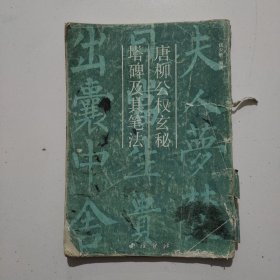 夫人夢梵
唐柳公权玄秘
塔碑及其笔法
曰當生貴
出囊中舍